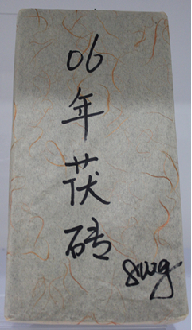 06年茯砖
800g